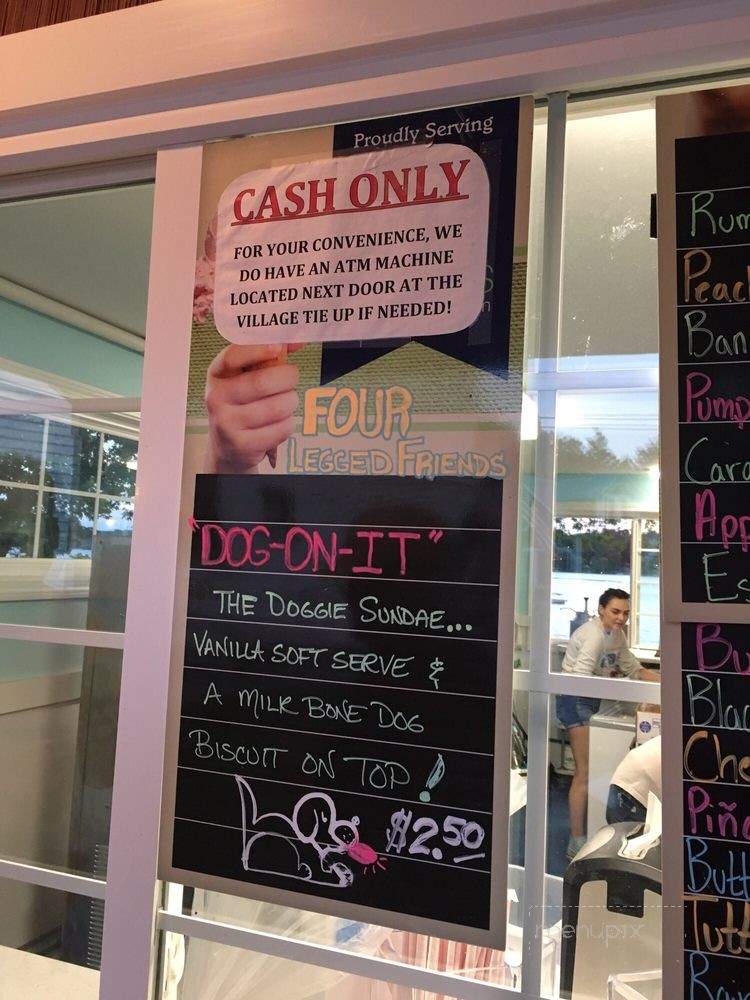 Proudly Serving
CASH ONLY
FOR YOUR CONVENIENCE, WE
DO HAVE AN ATM MACHINE
LOCATED NEXT DOOR AT THE
VILLAGE TIE UP IF NEEDED!
FOUR
LEGGED FRIENDS
"DOG-ON-IT"
THE DOGGIE SUNDAE...
VANILLA SOFT SERVE &
A MILK BONE DOG
BISCUIT ON TOP!
$2.50
Rum
Peac
Ban
Pump
Cara
App
Es
Bu
Blac
Che
Piña
Butt
Tutt
menupix